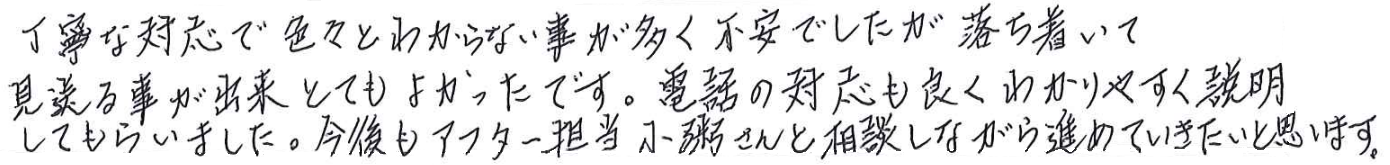 丁寧な対応で色々とわからない事が多く不安でしたが落ち着いて
見送る事が出来とてもよかったです。電話の対応も良くわかりやすく説明
してもらいました。今後もアフター担当小粥さんと相談しながら進めていきたいと思います。